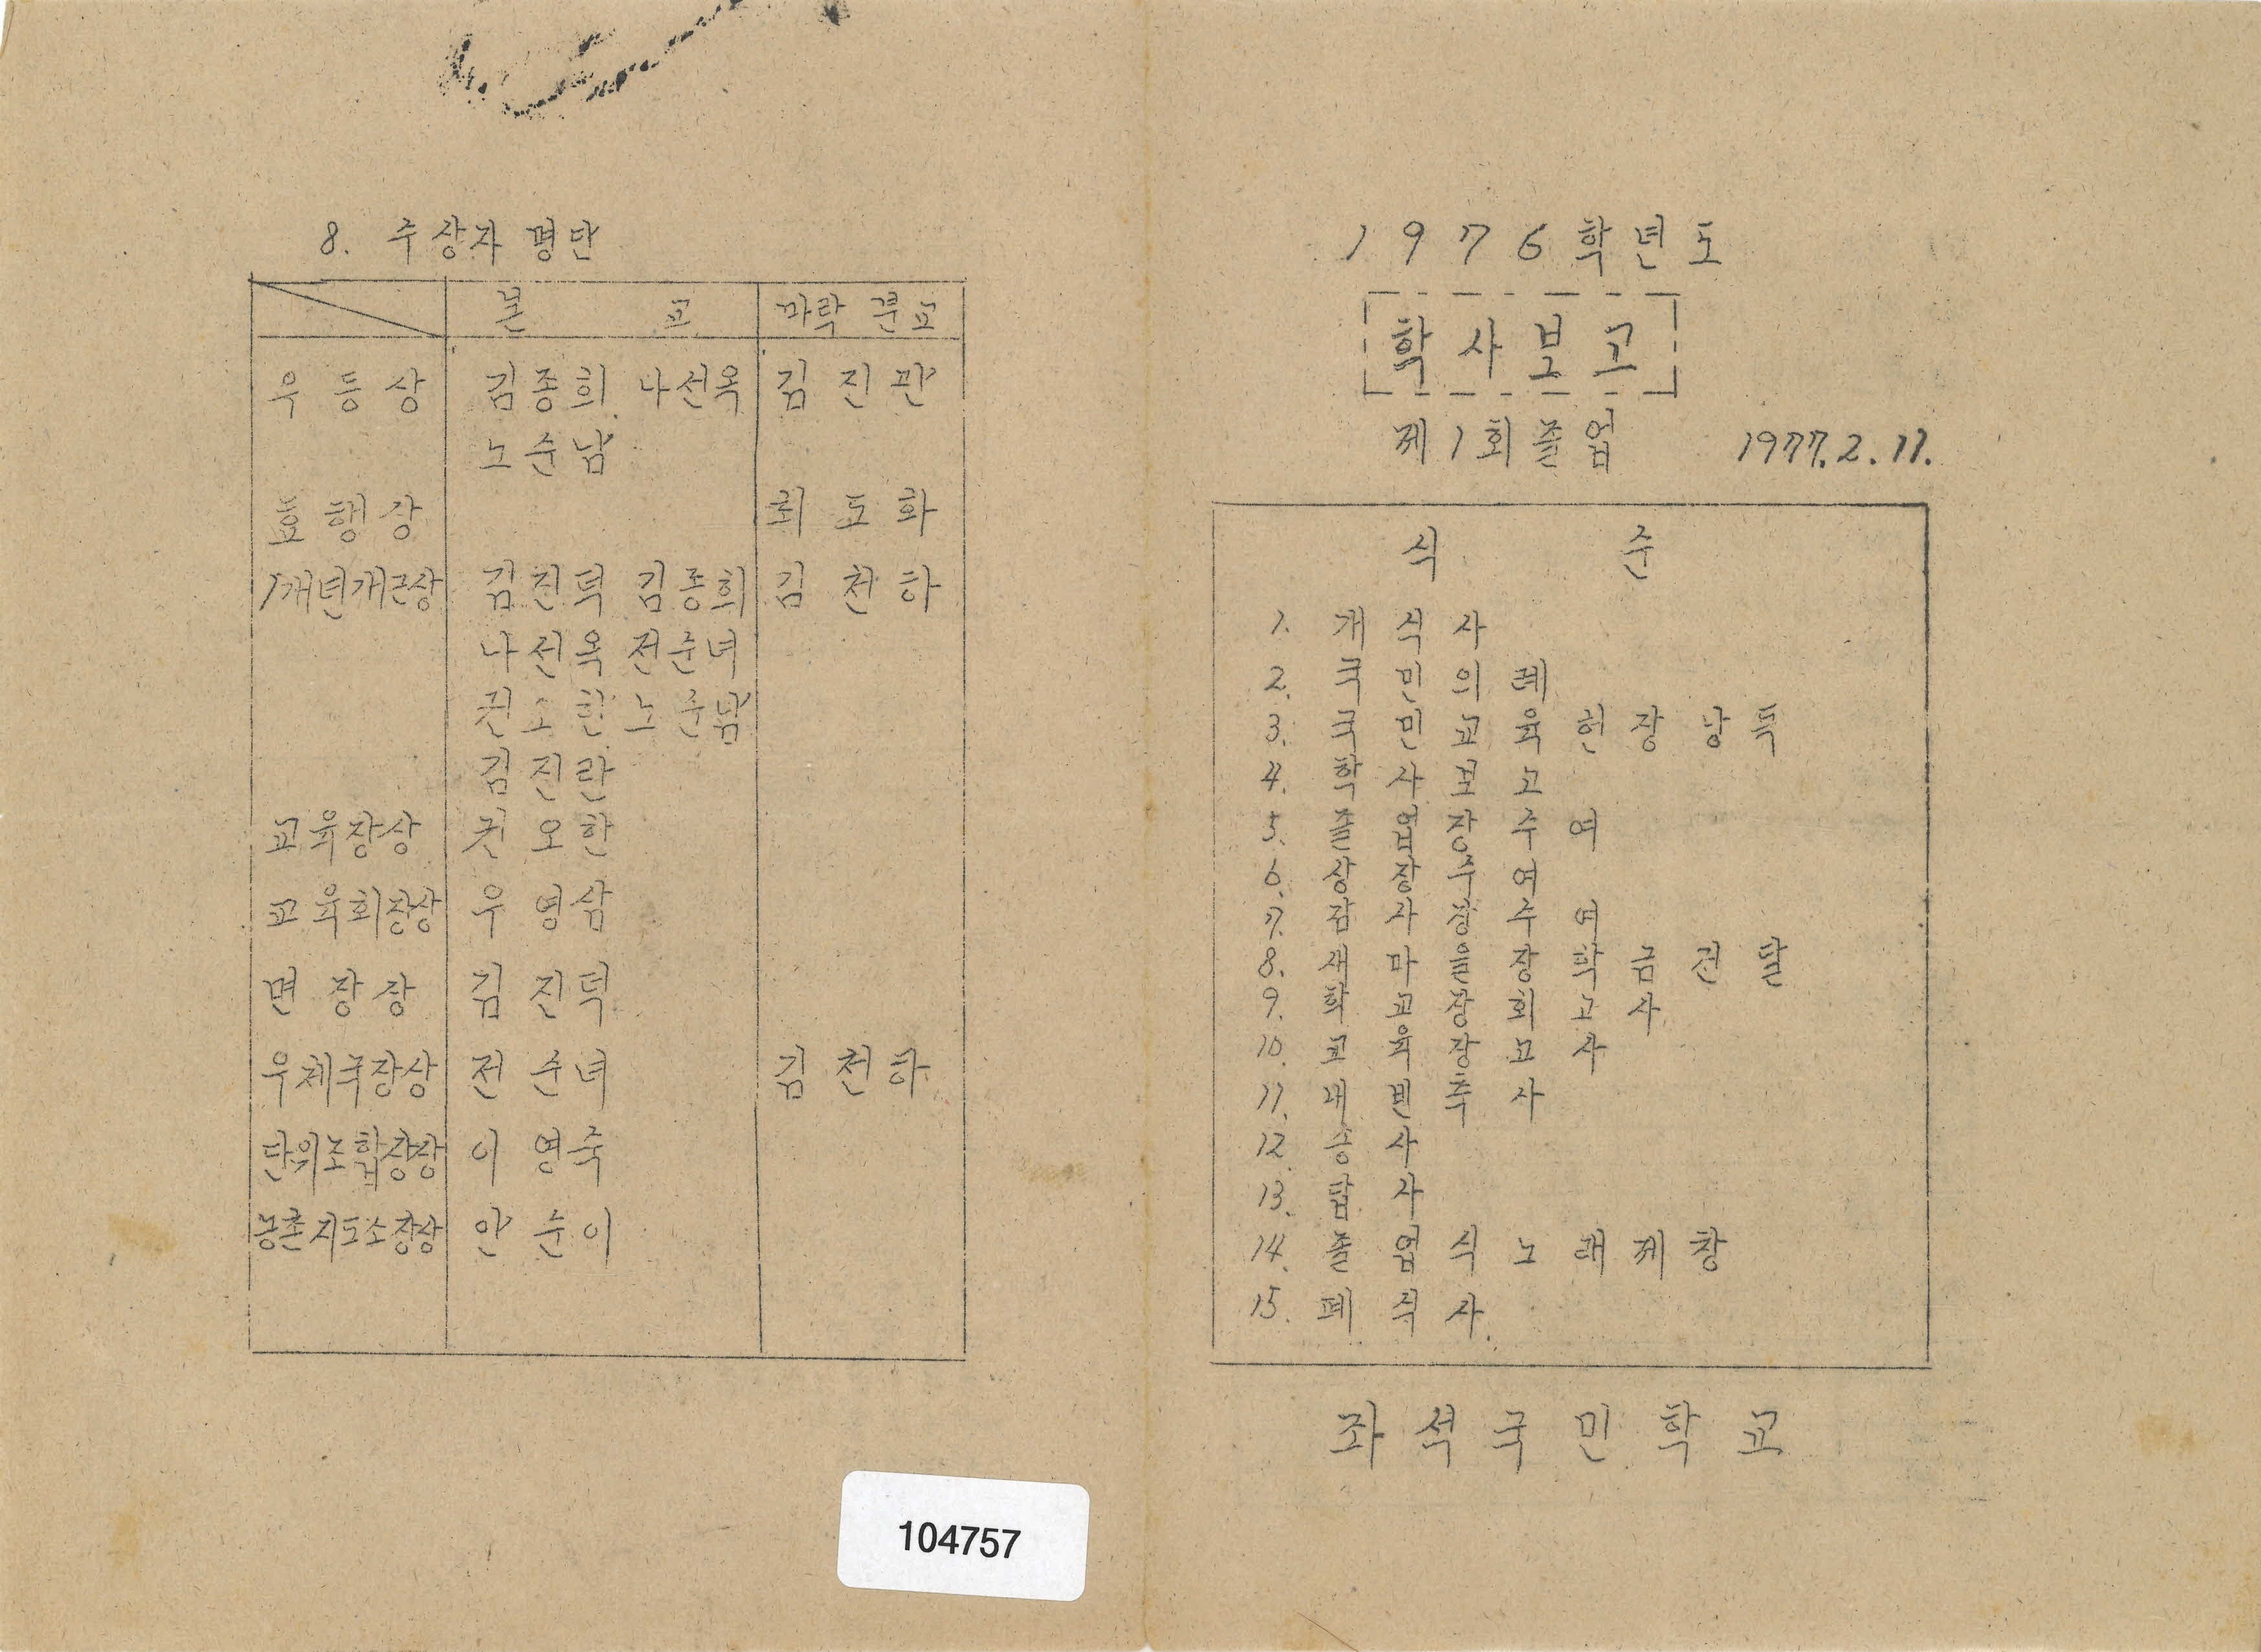 8. 수상자 명단
본 교 마락 분교
우등상 김종희 나선옥 김진관
노순남
효행상 최도화
1개년개근상 김진덕 김종희 김천하
나선옥 전순녀
권오한 노순남
김진란
교육장상 권오한
교육회장상 우영삼
면장상 김진덕
우체국장상 전순녀 김천하
단위조합장상 이영숙
농촌지도소장상 안순이
1976학년도
학사보고
제1회졸업 1977. 2. 11.
식 순
1. 개식사
2. 국민의례
3. 국민교육헌장낭독
4. 학사보고
5. 졸업장수여
6. 상장수여
7. 감사장수여
8. 새마을장학금전달
9. 학교장회고사
10. 교육장고사
11. 내빈축사
12. 송사
13. 답사
14. 졸업식노래제창
15. 폐식사.
좌석국민학교
104757